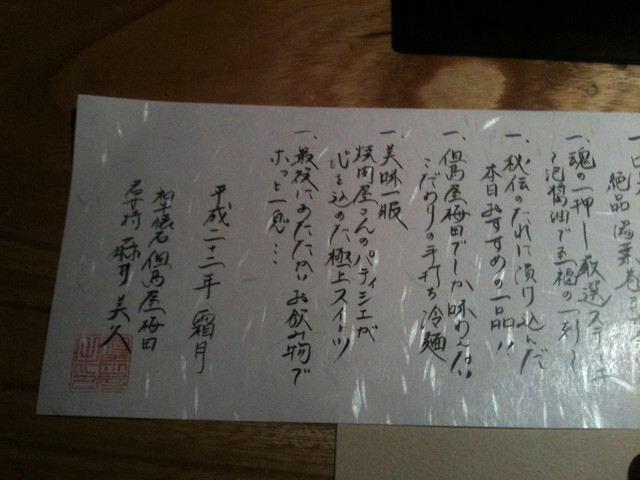 絶品
一、魂の一押し厳選ステーキ
〜泡醤油で至福の一刻〜
一、秘伝のたれに漬け込んだ
本日おすすめの一品!!
一、但馬屋梅田でしか味わえない!!
こだわりの手打ち冷麺
一、美味服
焼肉屋さんのパティシエが
心を込めた極上スイーツ
一、最後にあたたかいお飲み物で
ホッと一息…
平成二十二年 霜月
懐石但馬屋梅田
美久